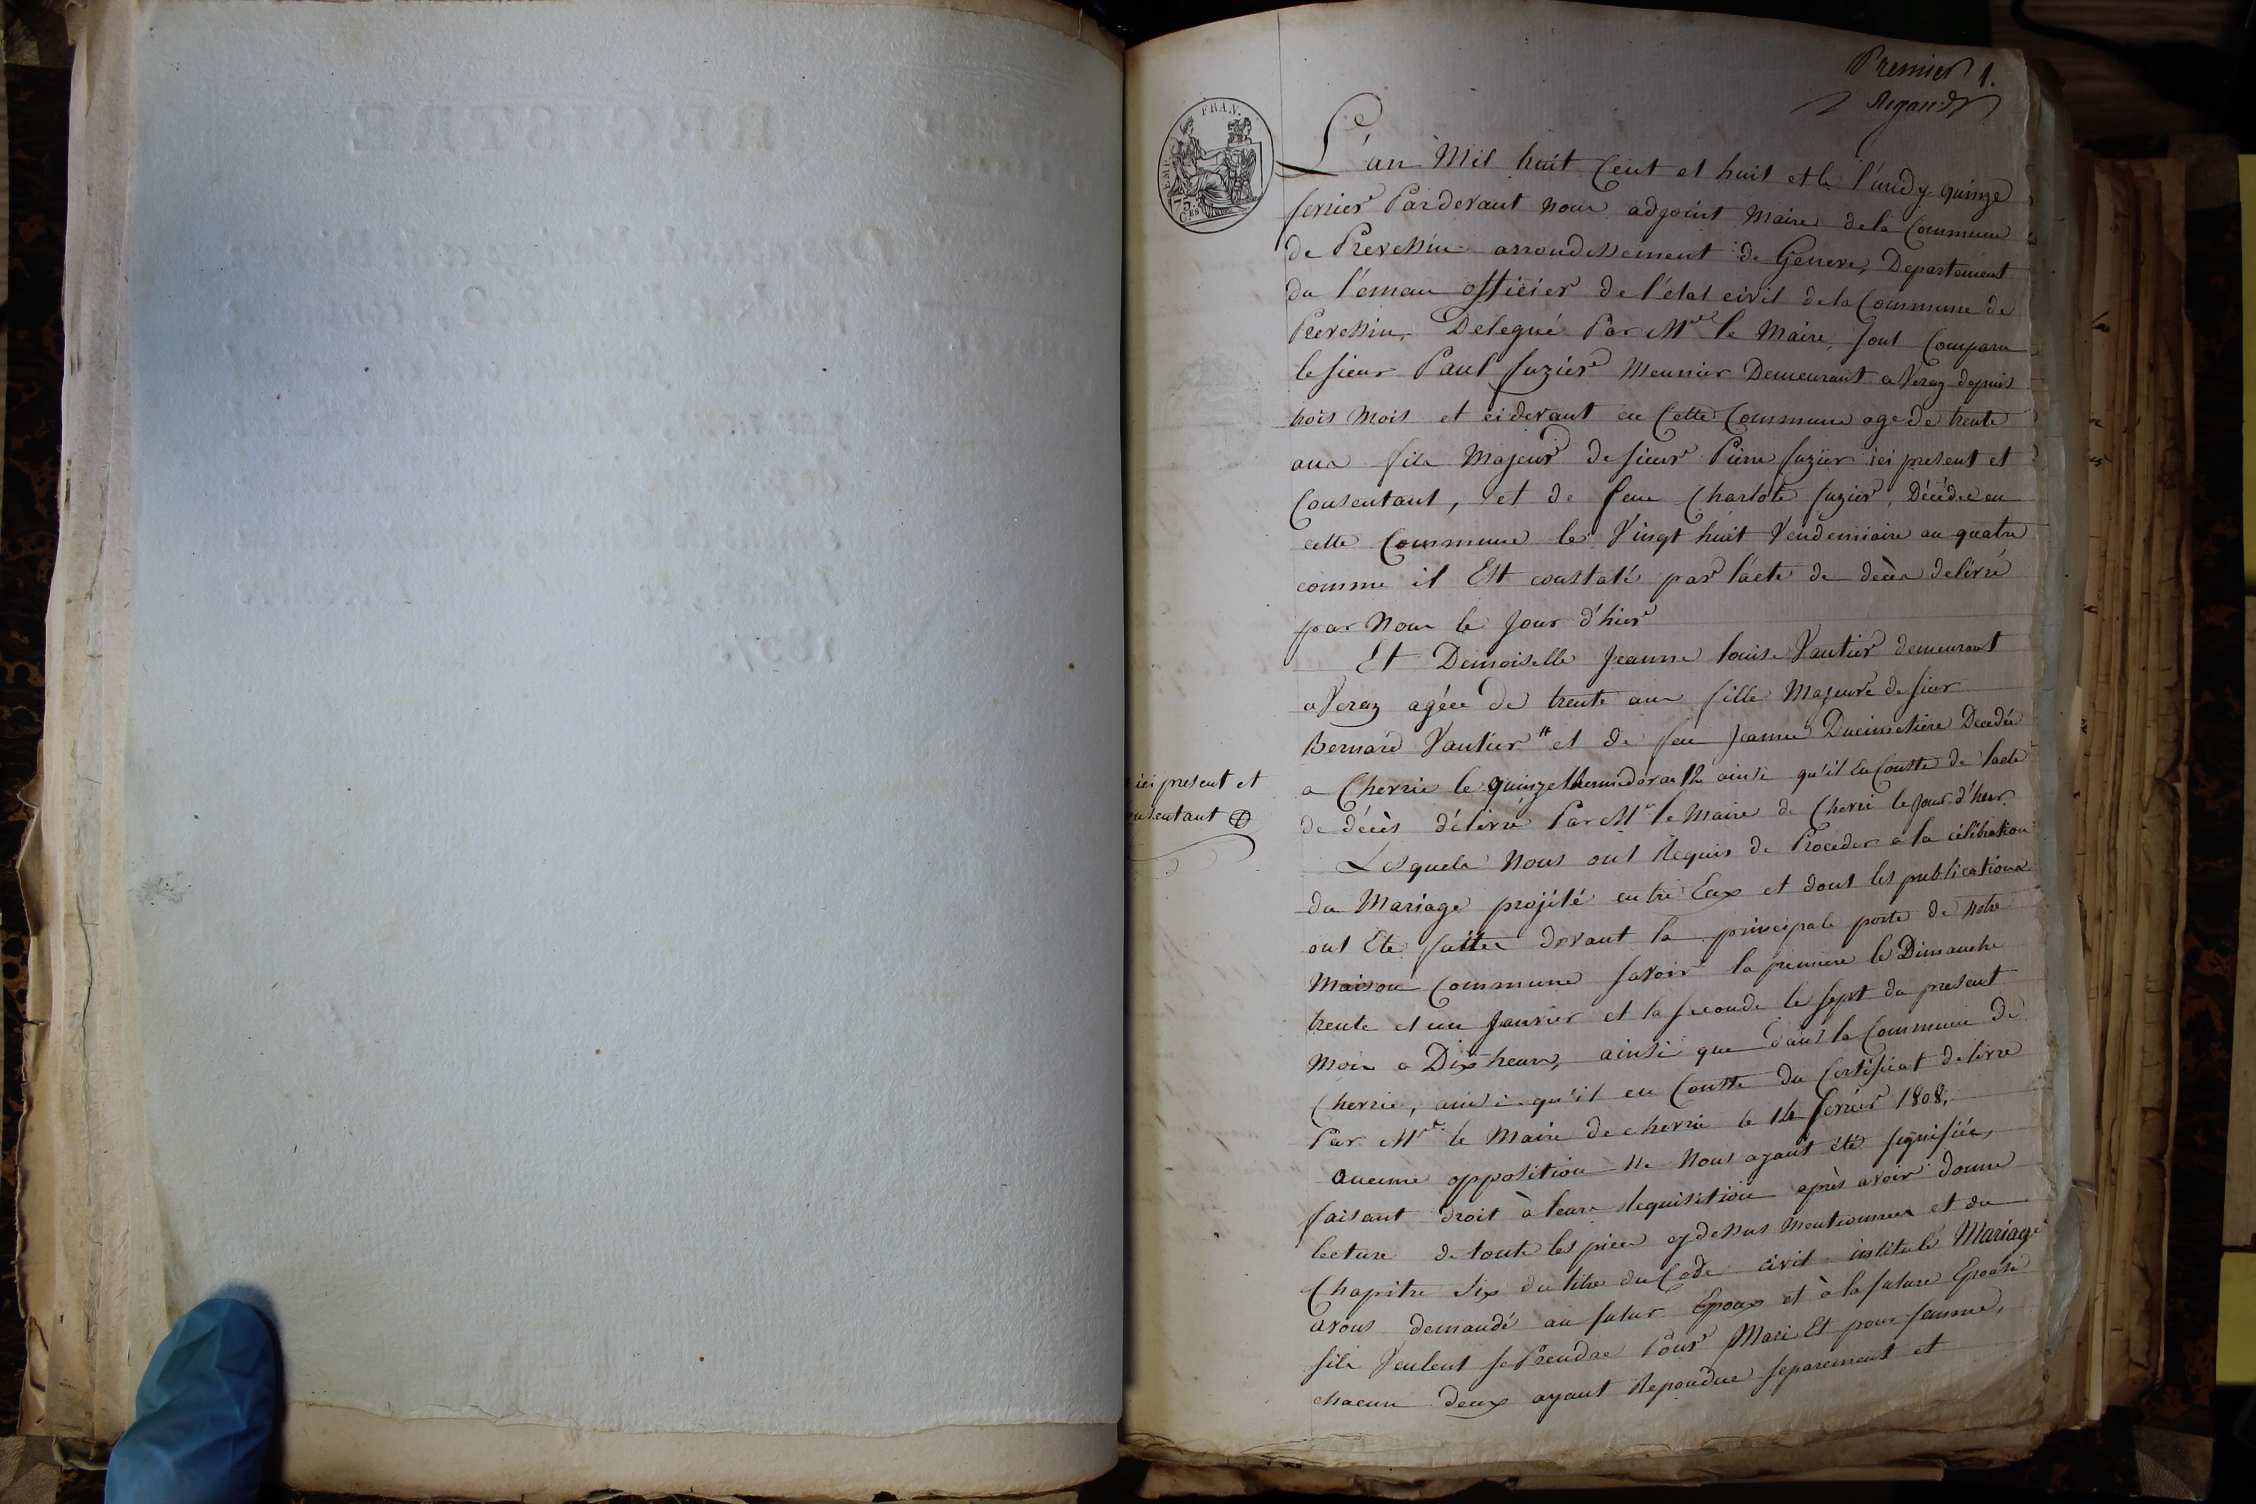 Premier 1.
FRAN.
EMP.
75
CES
L'an Mil huit Cent et huit et le l'undy quinze
fevrier Pardevant nous adjoint Maire de la Commune
de Prevessin arrondissement de Geneve, Departement
du l'eman officier de l'état civil de la Commune de
Prevessin, Delegué Par Mr le Maire, sont Comparu
le sieur Paul fuzier Meunier Demeurant a Veraz depuis
trois Mois et cidevant en Cette Commune age de trente
ans fils Majeur de sieur Pierre fuzier ici present et
Consentant, et de feue Charlote fuzier, Décédée en
cette Commune le Vingt huit Vendemiaire an quatre
comme il Est constaté par l'acte de decès delivré
par Nous le Jour d'hier
Et Demoiselle Jeanne louise Vautier demeurant
a Veraz agée de trente ans fille Majeure de sieur
Bernard Vautier # et de feu Jeanne Ducimetiere Decedée
ici present et
a Chevrie le quinze thermidor an 12 ainsi qu'il En Conste de l'acte
Consentant
de décès délivré Par Mr le Maire de Chevri le Jour d'hier
Lesquels Nous ont Requis de Proceder a la célébration
du Mariage projété entre Eux et dont les publications
ont Ete faittes devant la principale porte de notre
Maison Commune savoir la premiere le Dimanche
trente et un Janvier et la seconde le sept du present
Mois a Dix heures, ainsi que dans la Commune de
Chevrie, ainsi qu'il en Conste du Certificat delivré
Par Mr le Maire de chevrie le 14 fevrier 1808,
aucune opposition ne Nous ayant été signifiée,
faisant droit à leurs Requisition après avoir donné
lecture de toute les pieces cydessus mentionnees et du
Chapitre Six du titre du Code civil institulé Mariage
avons demandé au futur Epoux et à la future Epouse
sils Veulent se Prendre Pour Mari Et pour femme,
chacun deux ayant Repondue separement et